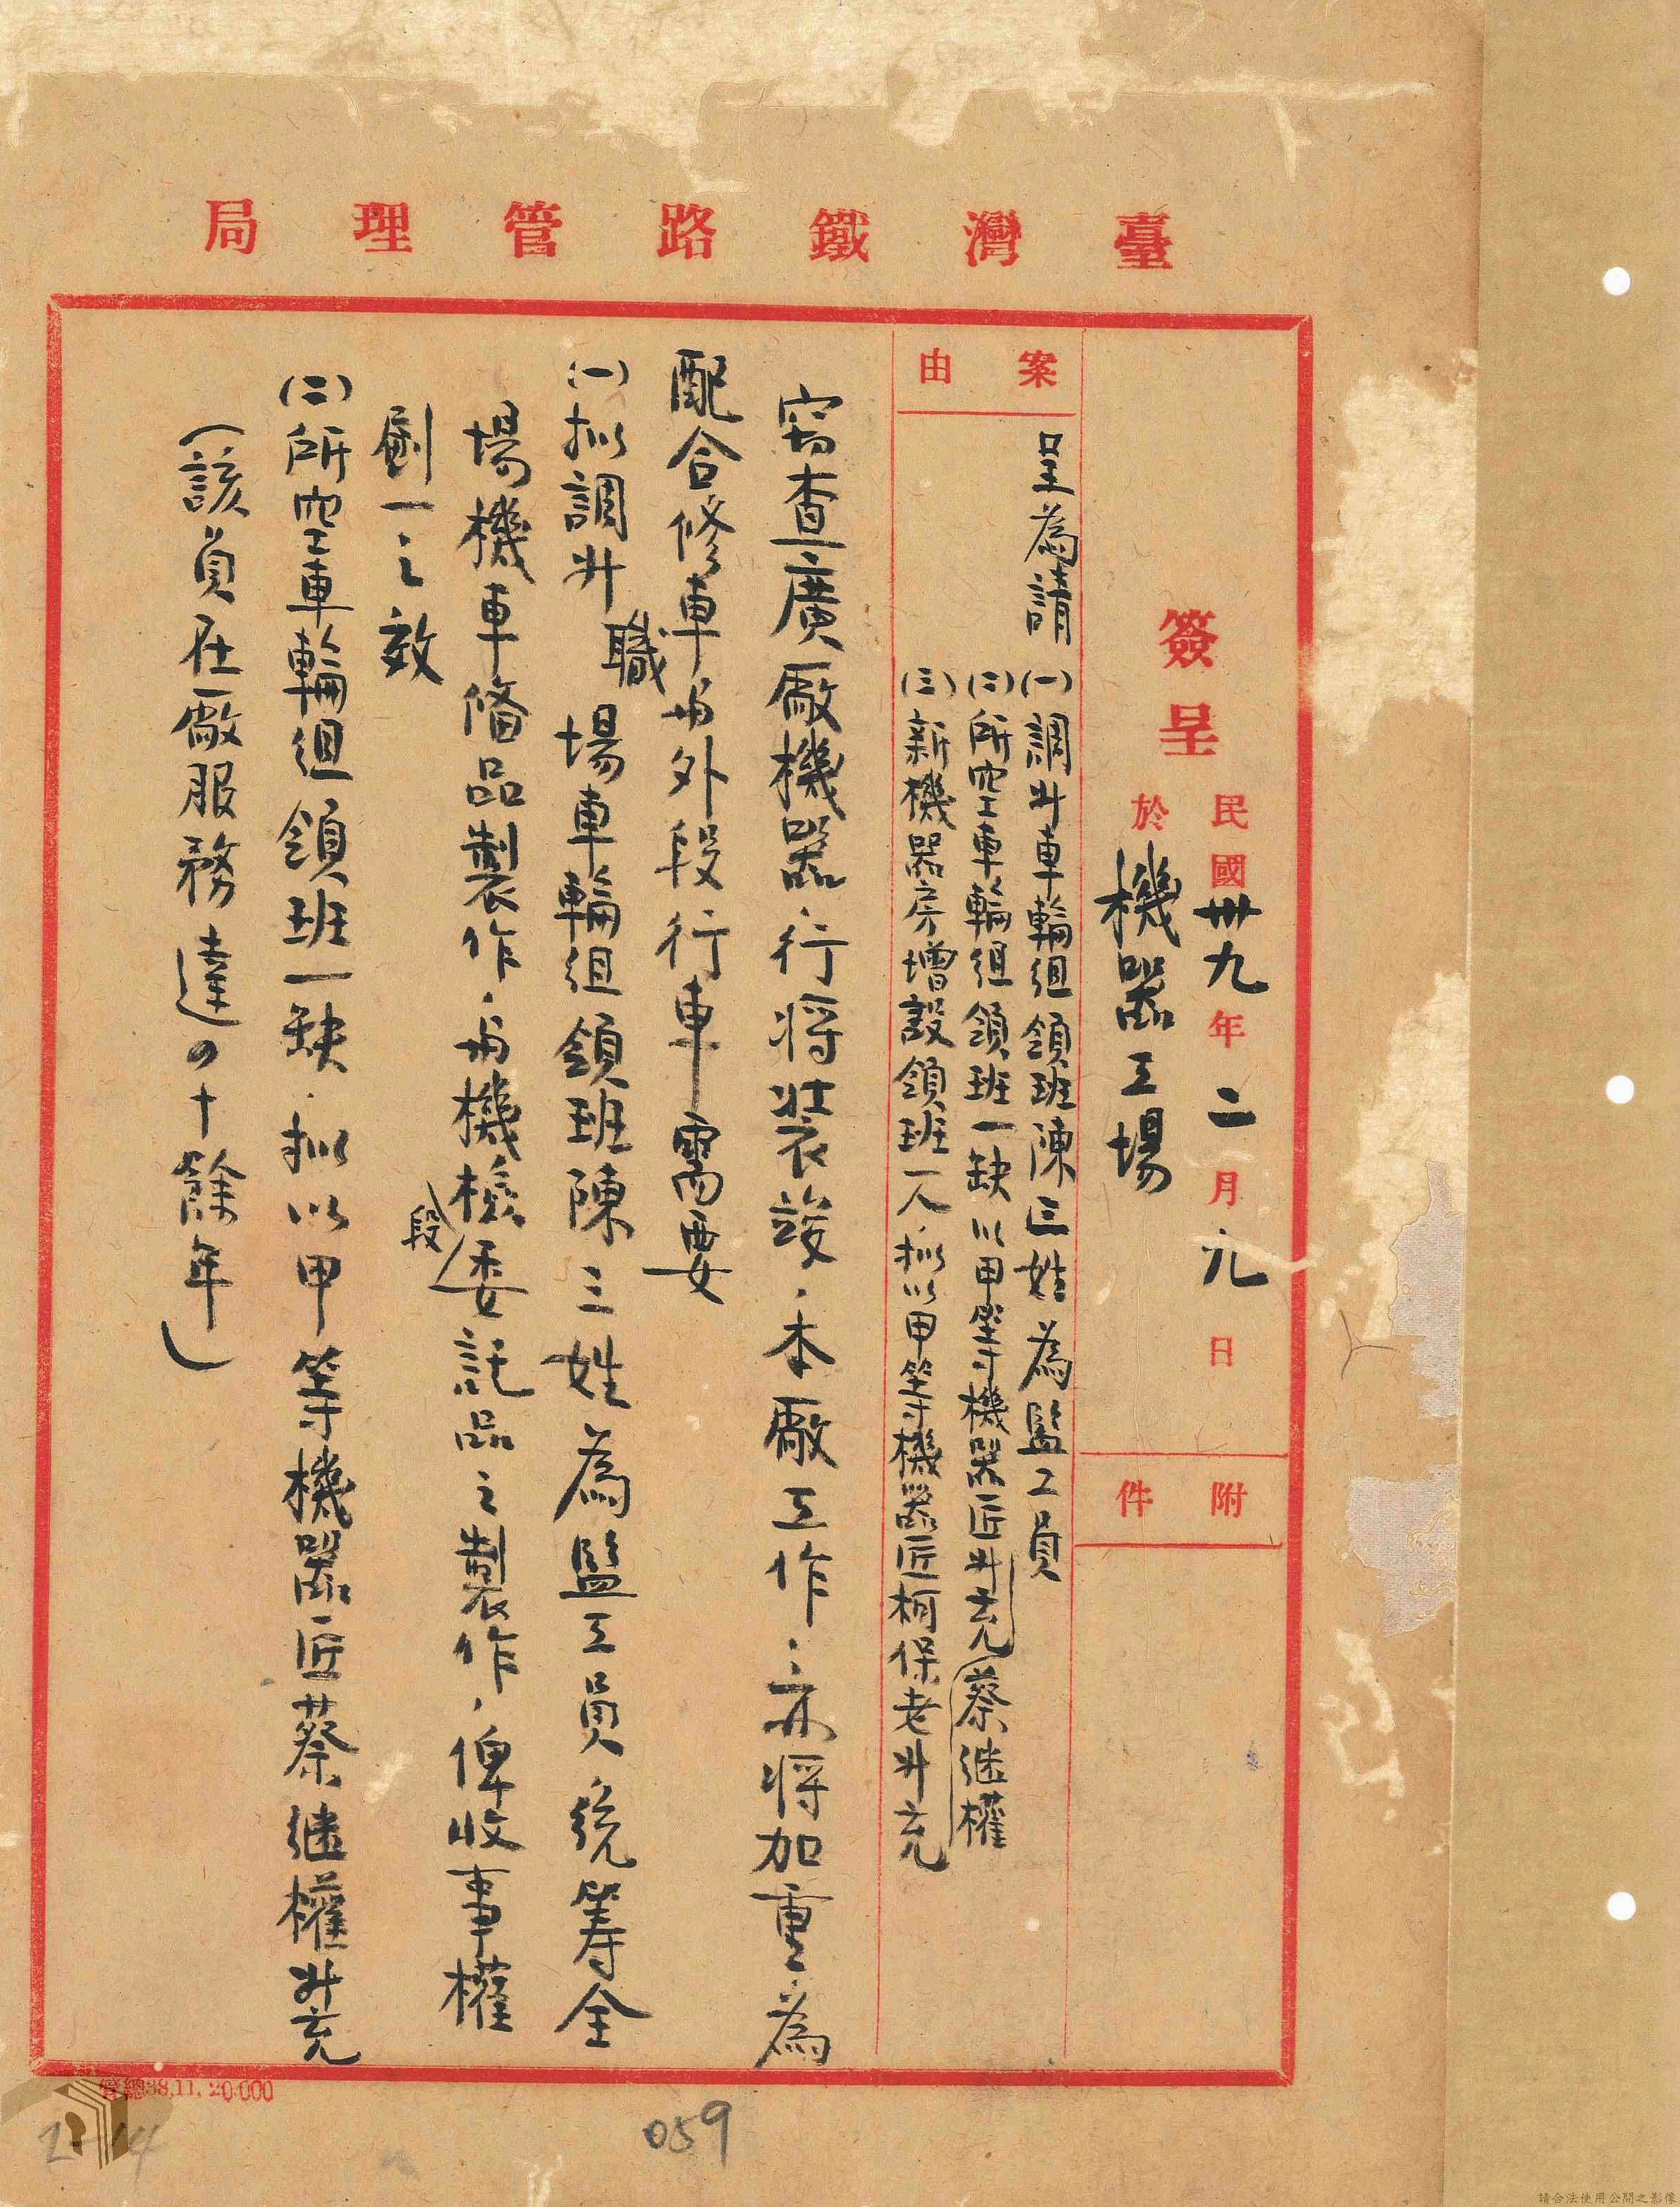 臺灣鐵路管理局
簽呈
民國卅九年二月九日
於機器工場
附件
案由
呈為請
(一)調升車輪組領班陳三姓為監工員
(二)所空車輪組領班一缺以甲等機器匠升充(蔡継權
(三)新機器房增設領班一人.拟以甲等機器匠柯保老升充
窃查廣廠機器.行将裝竣.本廠工作.亦将加重.為
配合修車与外段行車需要
(一)拟調升職場車輪組領班陳三姓為監工員.統籌全
場機車俻品製作.与機檢段委託品之製作,俾收事權
劃一之效
(二)所空車輪組領班一缺.拟以甲等機器匠蔡継權升充
(該員在廠服務達四十餘年)
管總38.11.20,000
059
2-14
請合法使用公開之影像